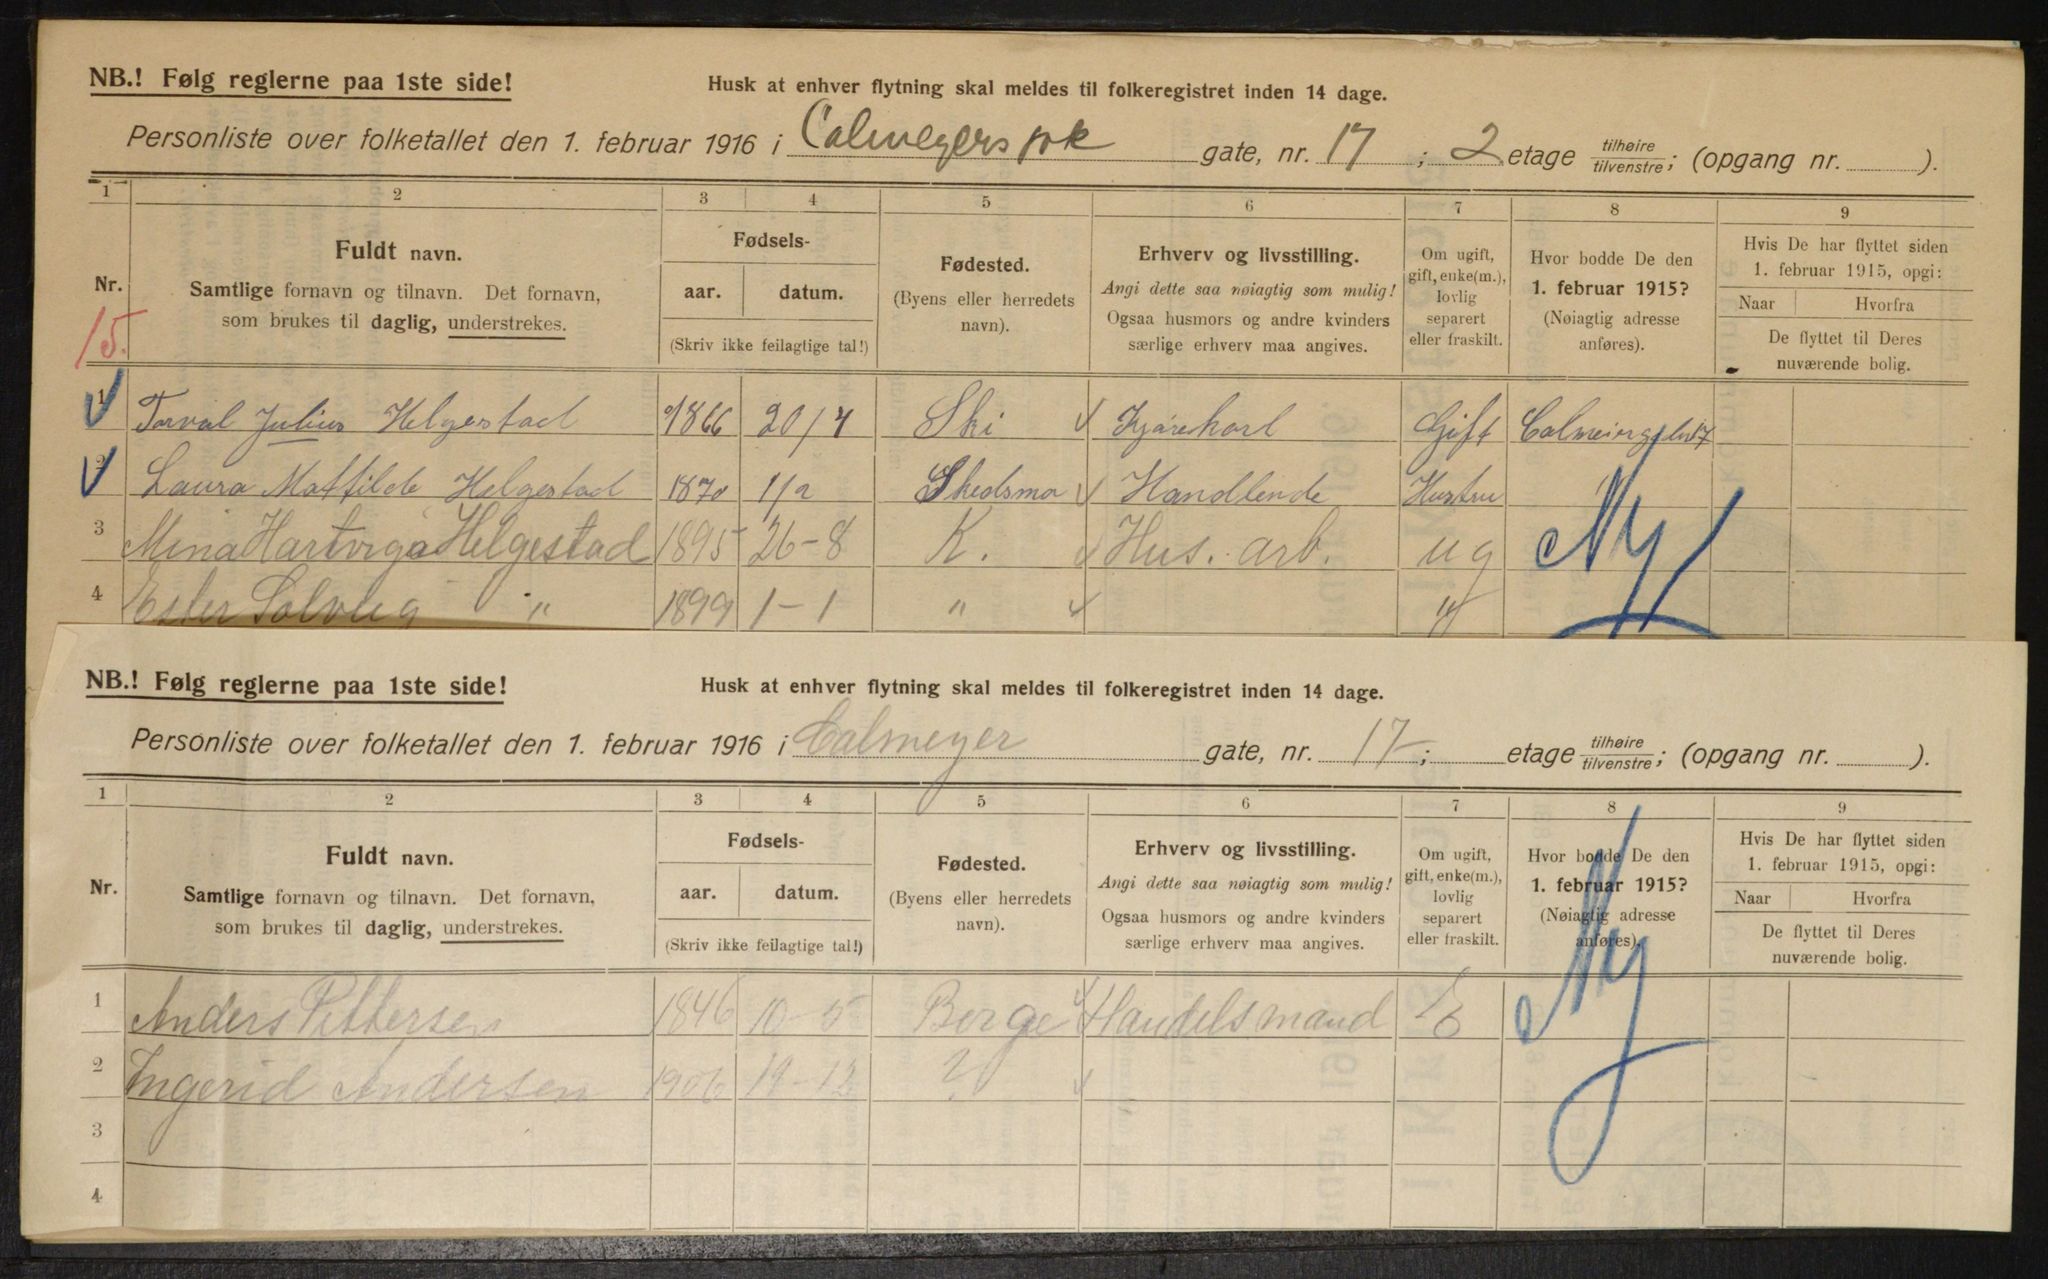 NB.! Følg reglerne paa 1ste side! Husk at enhver flytning skal meldes til folkeregistret inden 14 dage.
Personliste over folketallet den 1. februar 1916 i Calmeyers gate, nr. 17; 2 etage tilhøire/tilvenstre; (opgang nr. ).
1 2 3 4 5 6 7 8 9
Nr. Fuldt navn. Samtlige fornavn og tilnavn. Det fornavn, som brukes til daglig, understrekes. Fødsels- aar. datum. (Skriv ikke feilagtige tal!) Fødested. (Byens eller herredets navn). Erhverv og livsstilling. Angi dette saa nøiagtig som mulig! Ogsaa husmors og andre kvinders særlige erhverv maa angives. Om ugift, gift, enke(m.), lovlig separert eller fraskilt. Hvor bodde De den 1. februar 1915? (Nøiagtig adresse anføres). Hvis De har flyttet siden 1. februar 1915, opgi: Naar Hvorfra De flyttet til Deres nuværende bolig.
15.
1 Torval Julius Helgestad 1866 20/4 Ski Kjørekarl Gift
2 Laura Matfilde Helgestad 1870 1/2 Skedsmo Handlende Hustru "
3 Mina Hartviga Helgestad 1895 26-8 K. Hus. arb. ug Ny
4 Ester Solveig " 1899 1-1 " "
NB.! Følg reglerne paa 1ste side! Husk at enhver flytning skal meldes til folkeregistret inden 14 dage.
Personliste over folketallet den 1. februar 1916 i Calmeyer gate, nr. 17; etage tilhøire/tilvenstre; (opgang nr. ).
1 2 3 4 5 6 7 8 9
Nr. Fuldt navn. Samtlige fornavn og tilnavn. Det fornavn, som brukes til daglig, understrekes. Fødsels- aar. datum. (Skriv ikke feilagtige tal!) Fødested. (Byens eller herredets navn). Erhverv og livsstilling. Angi dette saa nøiagtig som mulig! Ogsaa husmors og andre kvinders særlige erhverv maa angives. Om ugift, gift, enke(m.), lovlig separert eller fraskilt. Hvor bodde De den 1. februar 1915? (Nøiagtig adresse anføres). Hvis De har flyttet siden 1. februar 1915, opgi: Naar Hvorfra De flyttet til Deres nuværende bolig.
1 Anders Pettersen 1846 10-5 Borge Handelsmand E Ny
2 Ingerid Andersen 1906 19-12 ?
3
4